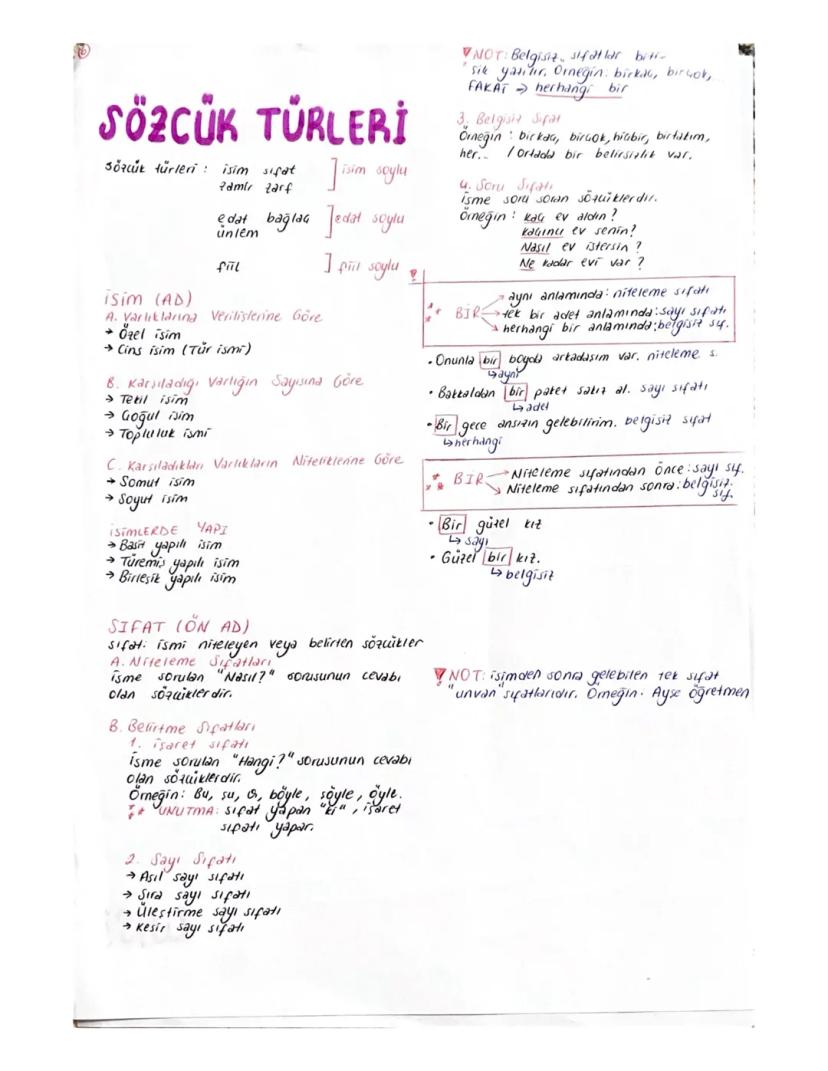 SÖZCÜK TÜRLERİ
Sözcük türleri : isim sıfat ] isim soylu
zamir zarf
edat bağlaç ] edat soylu
ünlem
fiil ] fiil soylu
İSİM (AD)
A. Varlıklarına Verilişlerine Göre
→ Özel isim
→ Cins isim (Tür ismi)
B. Karşıladığı Varlığın Sayısına Göre
→ Tekil isim
→ Çoğul isim
→ Topluluk ismi
C. Karşıladıkları Varlıkların Niteliklerine Göre
→ Somut isim
→ Soyut isim
İSİMLERDE YAPI
→ Basit yapılı isim
→ Türemiş yapılı isim
→ Birleşik yapılı isim
SIFAT (ÖN AD)
Sıfat: ismi niteleyen veya belirten sözcükler
A. Niteleme Sıfatları
İsme sorulan "Nasıl?" sorusunun cevabı
olan sözcüklerdir.
B. Belirtme Sıfatları
1. İşaret sıfatı
İsme sorulan "Hangi?" sorusunun cevabı
olan sözcüklerdir.
Örneğin: Bu, şu, o, böyle, şöyle, öyle.
** UNUTMA: sıfat yapan "ki", işaret
sıfatı yapar.
2. Sayı Sıfatı
→ Asıl sayı sıfatı
→ Sıra sayı sıfatı
→ Üleştirme sayı sıfatı
→ Kesir sayı sıfatı
NOT: Belgisiz sıfatlar biti-
şik yazılır. Örneğin: birkaç, birçok,
FAKAT → herhangi bir
3. Belgisiz Sıfat
Örneğin : birkaç, birçok, hiçbir, birtakım,
her... / Ortada bir belirsizlik var.
4. Soru Sıfatı
İsme soru soran sözcüklerdir.
Örneğin : kaç ev aldın?
kaçıncı ev senin?
Nasıl ev istersin?
Ne kadar evi var?
aynı anlamında: niteleme sıfatı
** BİR → tek bir adet anlamında: sayı sıfatı
herhangi bir anlamında: belgisiz sıf.
• Onunla bir boyda arkadaşım var. niteleme s.
↳ aynı
• Bakkaldan bir paket sakız al. sayı sıfatı
↳ adet
• Bir gece ansızın gelebilirim. belgisiz sıfat
↳ herhangi
** BİR → Niteleme sıfatından önce: sayı sıf.
Niteleme sıfatından sonra: belgisiz
sıf.
• Bir güzel kız
↳ sayı
• Güzel bir kız.
↳ belgisiz
NOT: isimden sonra gelebilen tek sıfat
"unvan" sıfatlarıdır. Örneğin: Ayşe öğretmen